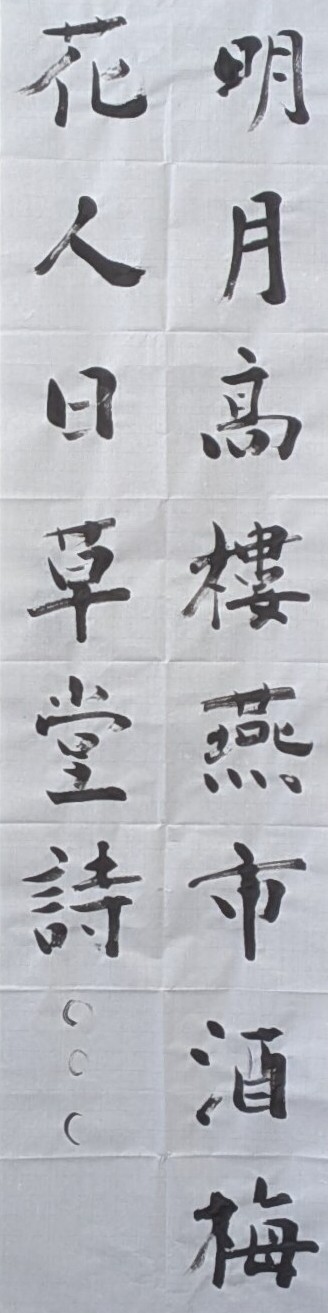 明月高樓燕市酒梅
花人日草堂詩○○○